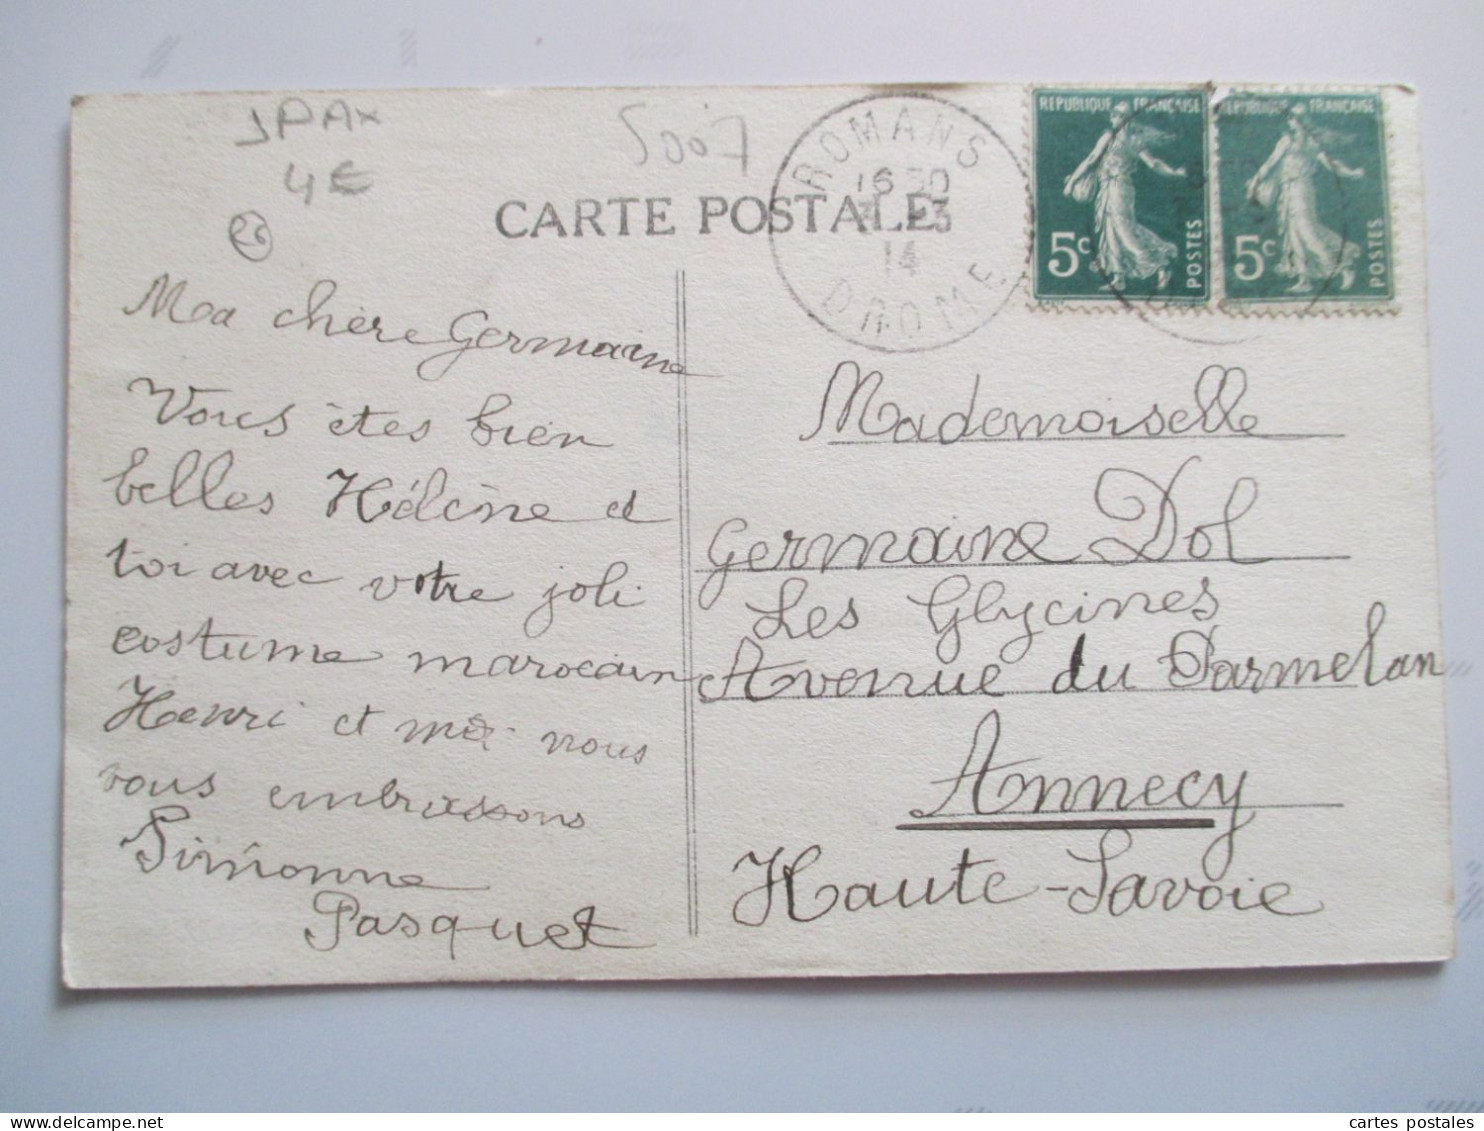 JPAx
4€
5007
26
CARTE POSTALE
ROMANS
16 30
3 - 3
14
DROME
REPUBLIQUE FRANÇAISE
5c
POSTES
REPUBLIQUE FRANÇAISE
5c
POSTES
Ma chère Germaine
Vous êtes bien
belles Hélène et
toi avec votre joli
costume marocain
Henri et moi nous
vous embrassons
Simonne
Pasquet
Mademoiselle
Germaine Dol
Les Glycines
Avenue du Parmelan
Annecy
Haute-Savoie
cartes postales